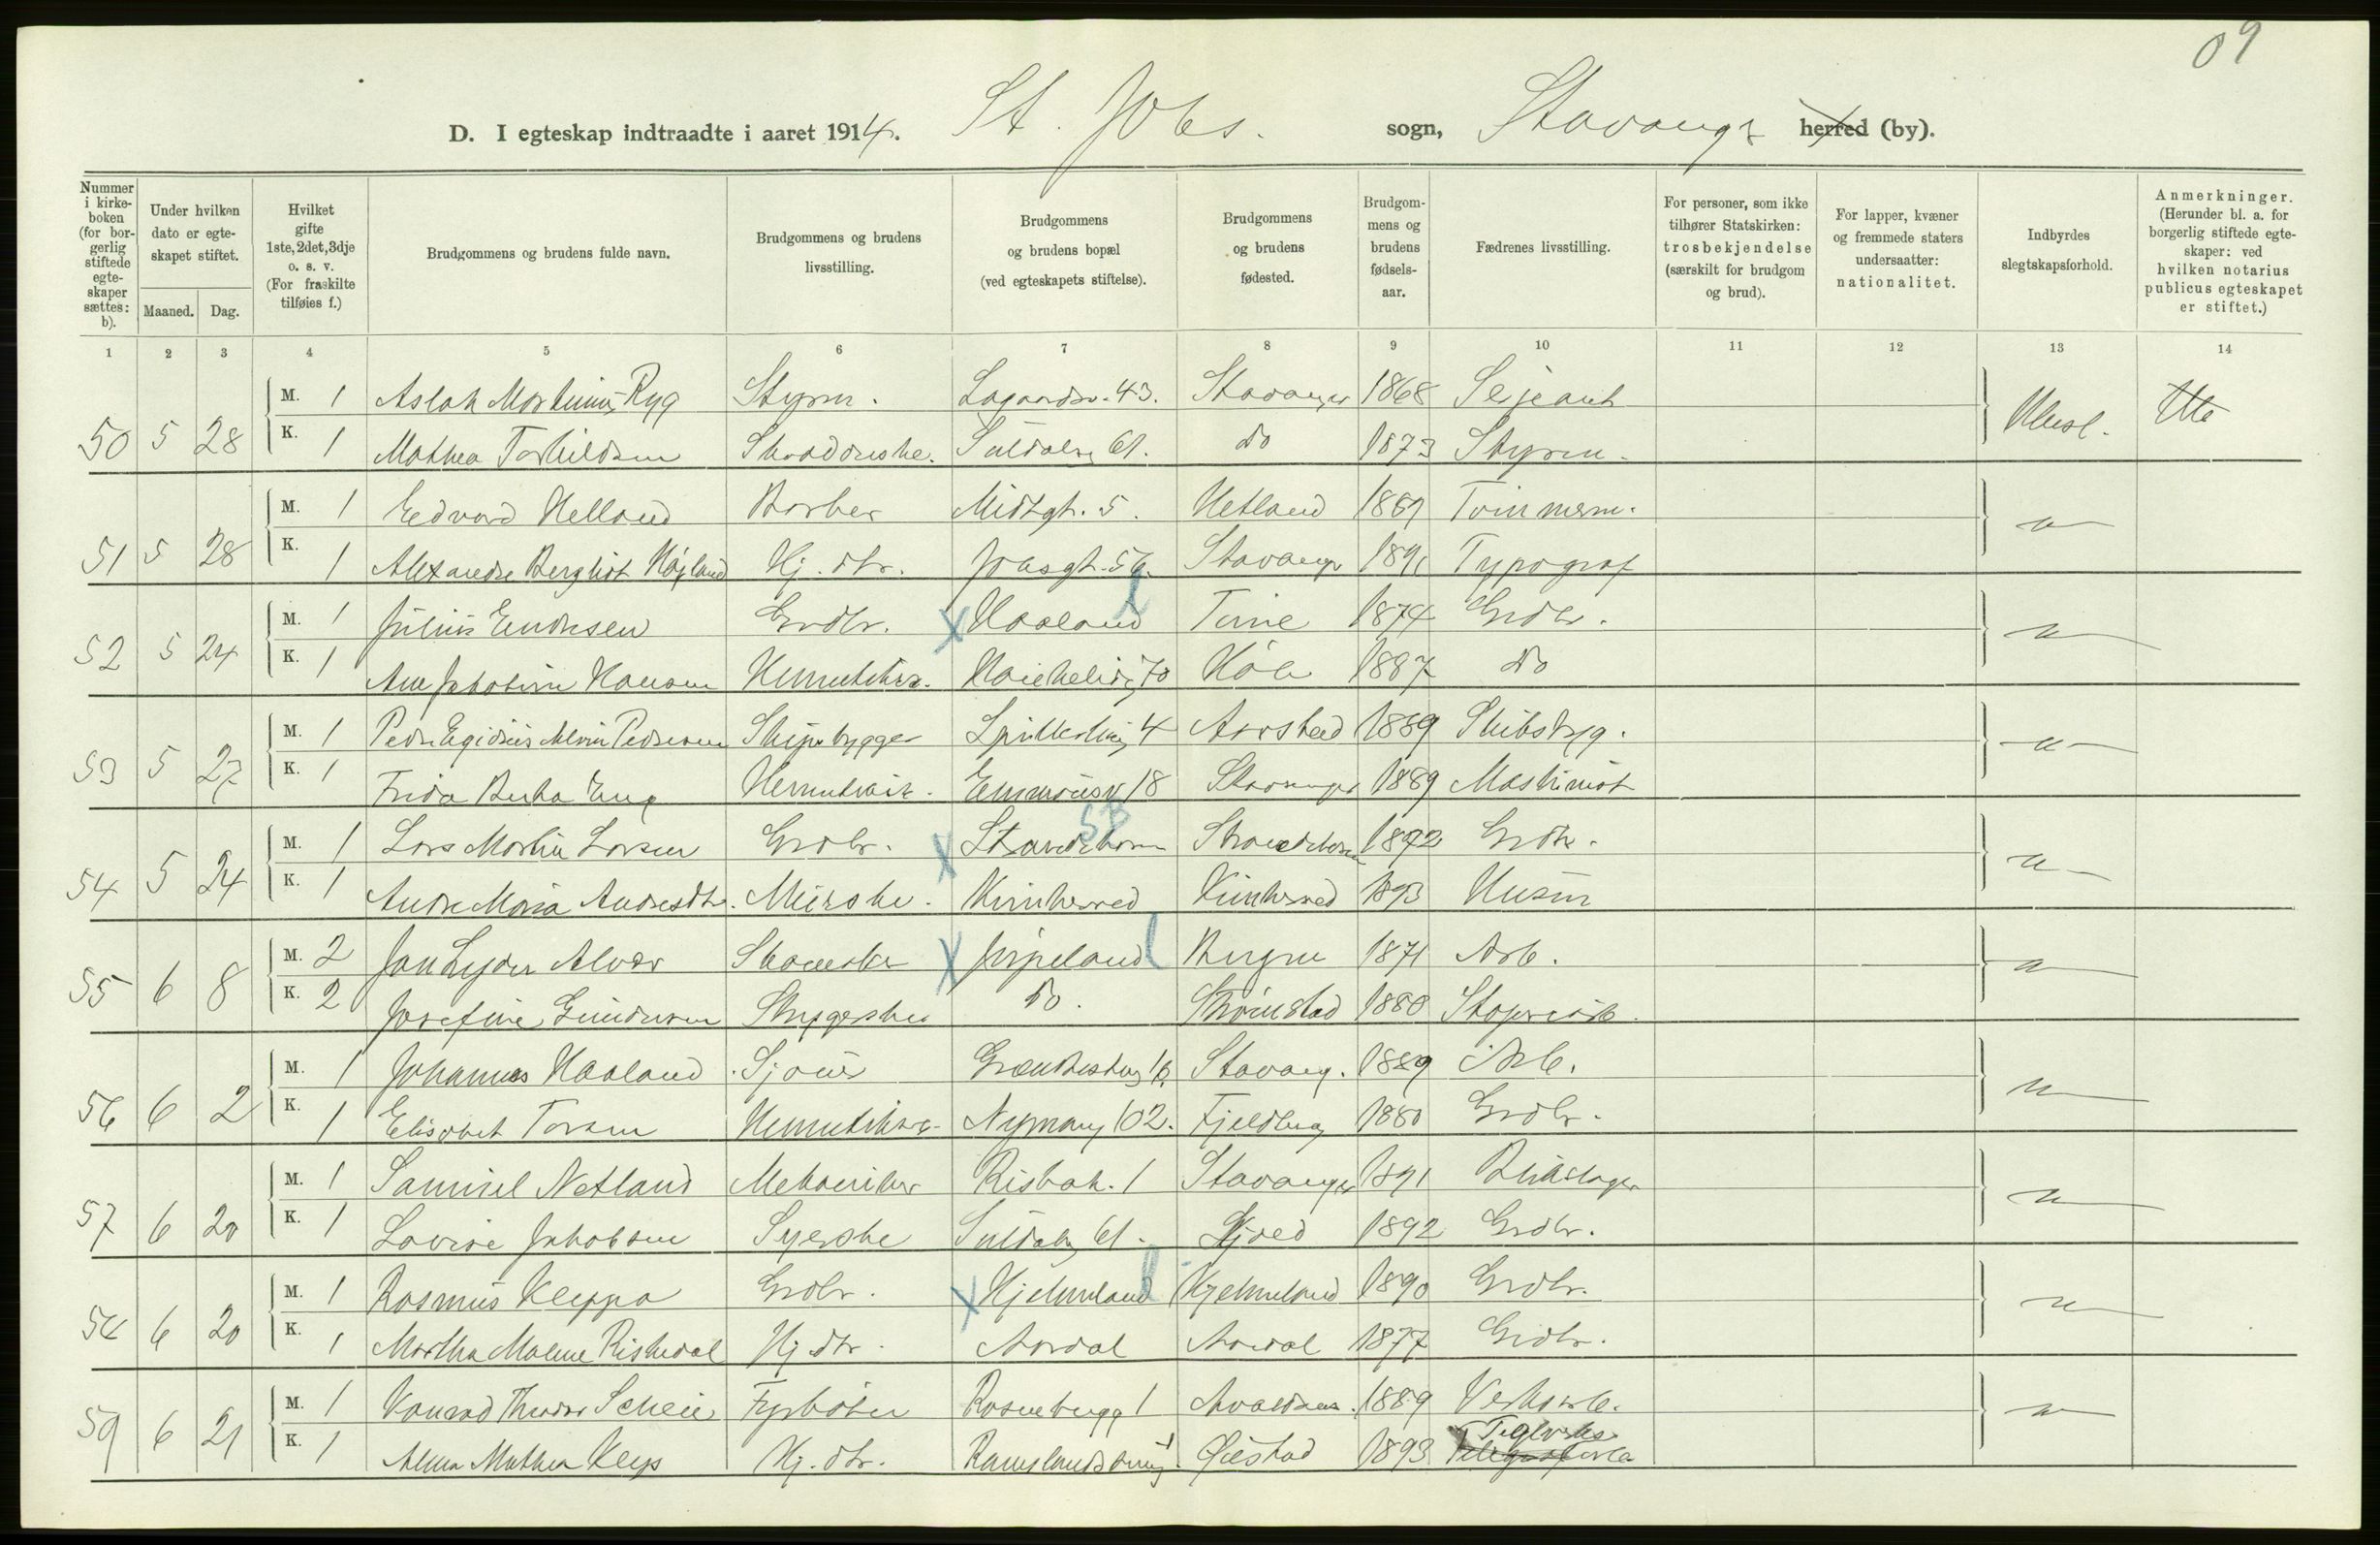 09
D. I egteskap indtraadte i aaret 1914. St. Johs. sogn, Stavanger herred (by).
Nummer i kirke-boken (for bor-gerlig stiftede egte-skaper sættes: b).
Under hvilken dato er egte-skapet stiftet.
Maaned. Dag.
Hvilket gifte 1ste, 2det, 3dje o. s. v. (For fraskilte tilføies f.)
Brudgommens og brudens fulde navn.
Brudgommens og brudens livsstilling.
Brudgommens og brudens bopæl (ved egteskapets stiftelse).
Brudgommens og brudens fødested.
Brudgom-mens og brudens fødsels-aar.
Fædrenes livsstilling.
For personer, som ikke tilhører Statskirken: trosbekjendelse (særskilt for brudgom og brud).
For lapper, kvæner og fremmede staters undersaatter: nationalitet.
Indbyrdes slegtskapsforhold.
Anmerkninger. (Herunder bl. a. for borgerlig stiftede egte-skaper: ved hvilken notarius publicus egteskapet er stiftet.)
1 2 3 4 5 6 7 8 9 10 11 12 13 14
M. 1 Aslak Martinius Ryg Styrm. Lagaardsv. 43. Stavanger 1868 Serjeant
50 5 28 K. 1 Mathea Torkildsen Skrædderske. Suldalsg 61. do 1873 Styrm.
M. 1 Edvard Helland Barber Midtgt. 5. Hetland 1889 Tømmerm. "
51 5 28 K. 1 Alexandre Bergliot Høyland Hj. dtr. Johsgt. 56. Stavanger 1891 Typograf
M. 1 Julius Endresen Grdbr. x Haaland l Time 1874 Grdbr. "
52 5 24 K. 1 Ane Jakobine Hansen Hermetikarb. 70 Høle 1887 do
M. 1 Peder Egidius Pedersen Skipsbygger 4 Aarstad 1889 Skibsbyg. "
53 5 27 K. 1 Frida Berta Eng Hermetikarb. Emmausv 18 Stavanger 1889 Maskinist
SB
M. 1 Lars Martin Larsen Grdbr. x Strandebarm Strandebarm 1892 Grdbr. "
54 5 24 K. 1 Andrea Maria Andersdtr. Meierske. Kvinherred Kvinherred 1893 Husm
M. 2 Jan Lyder Alver Skomaker x Jørpeland l Bergen 1871 Arb. "
55 6 8 K. 2 Josefine Gundersen Strygerske do. Strømstad 1880
M. 1 Johannes Haaland Sjauer 16 Stavang. 1889 Arb. "
56 6 2 K. 1 Elisabet Torsen Hermetikarb. Nymansg 102. Fjeldberg 1880 Grdbr.
M. 1 Samuel Netland Mekaniker Risbak. 1 Stavanger 1891 Blikslager "
57 6 20 K. 1 Lovise Jakobsen Syerske Suldalsg 61. Skjold 1892 Grdbr.
M. 1 Rasmus Kleppa Grdbr. x Hjelmeland l Hjelmeland 1890 Grdbr. "
58 6 20 K. 1 Martha Malene Riskedal Hj. dtr. Aardal Aardal 1877 Grdbr.
M. 1 Konrad Theodor Scheie Fyrbøter 1 Avaldsnes. 1889 Verksarb. "
Teglverks
59 6 21 K. 1 Alma Mathea Kleys Hj. dtr. 1 Øiestad 1893